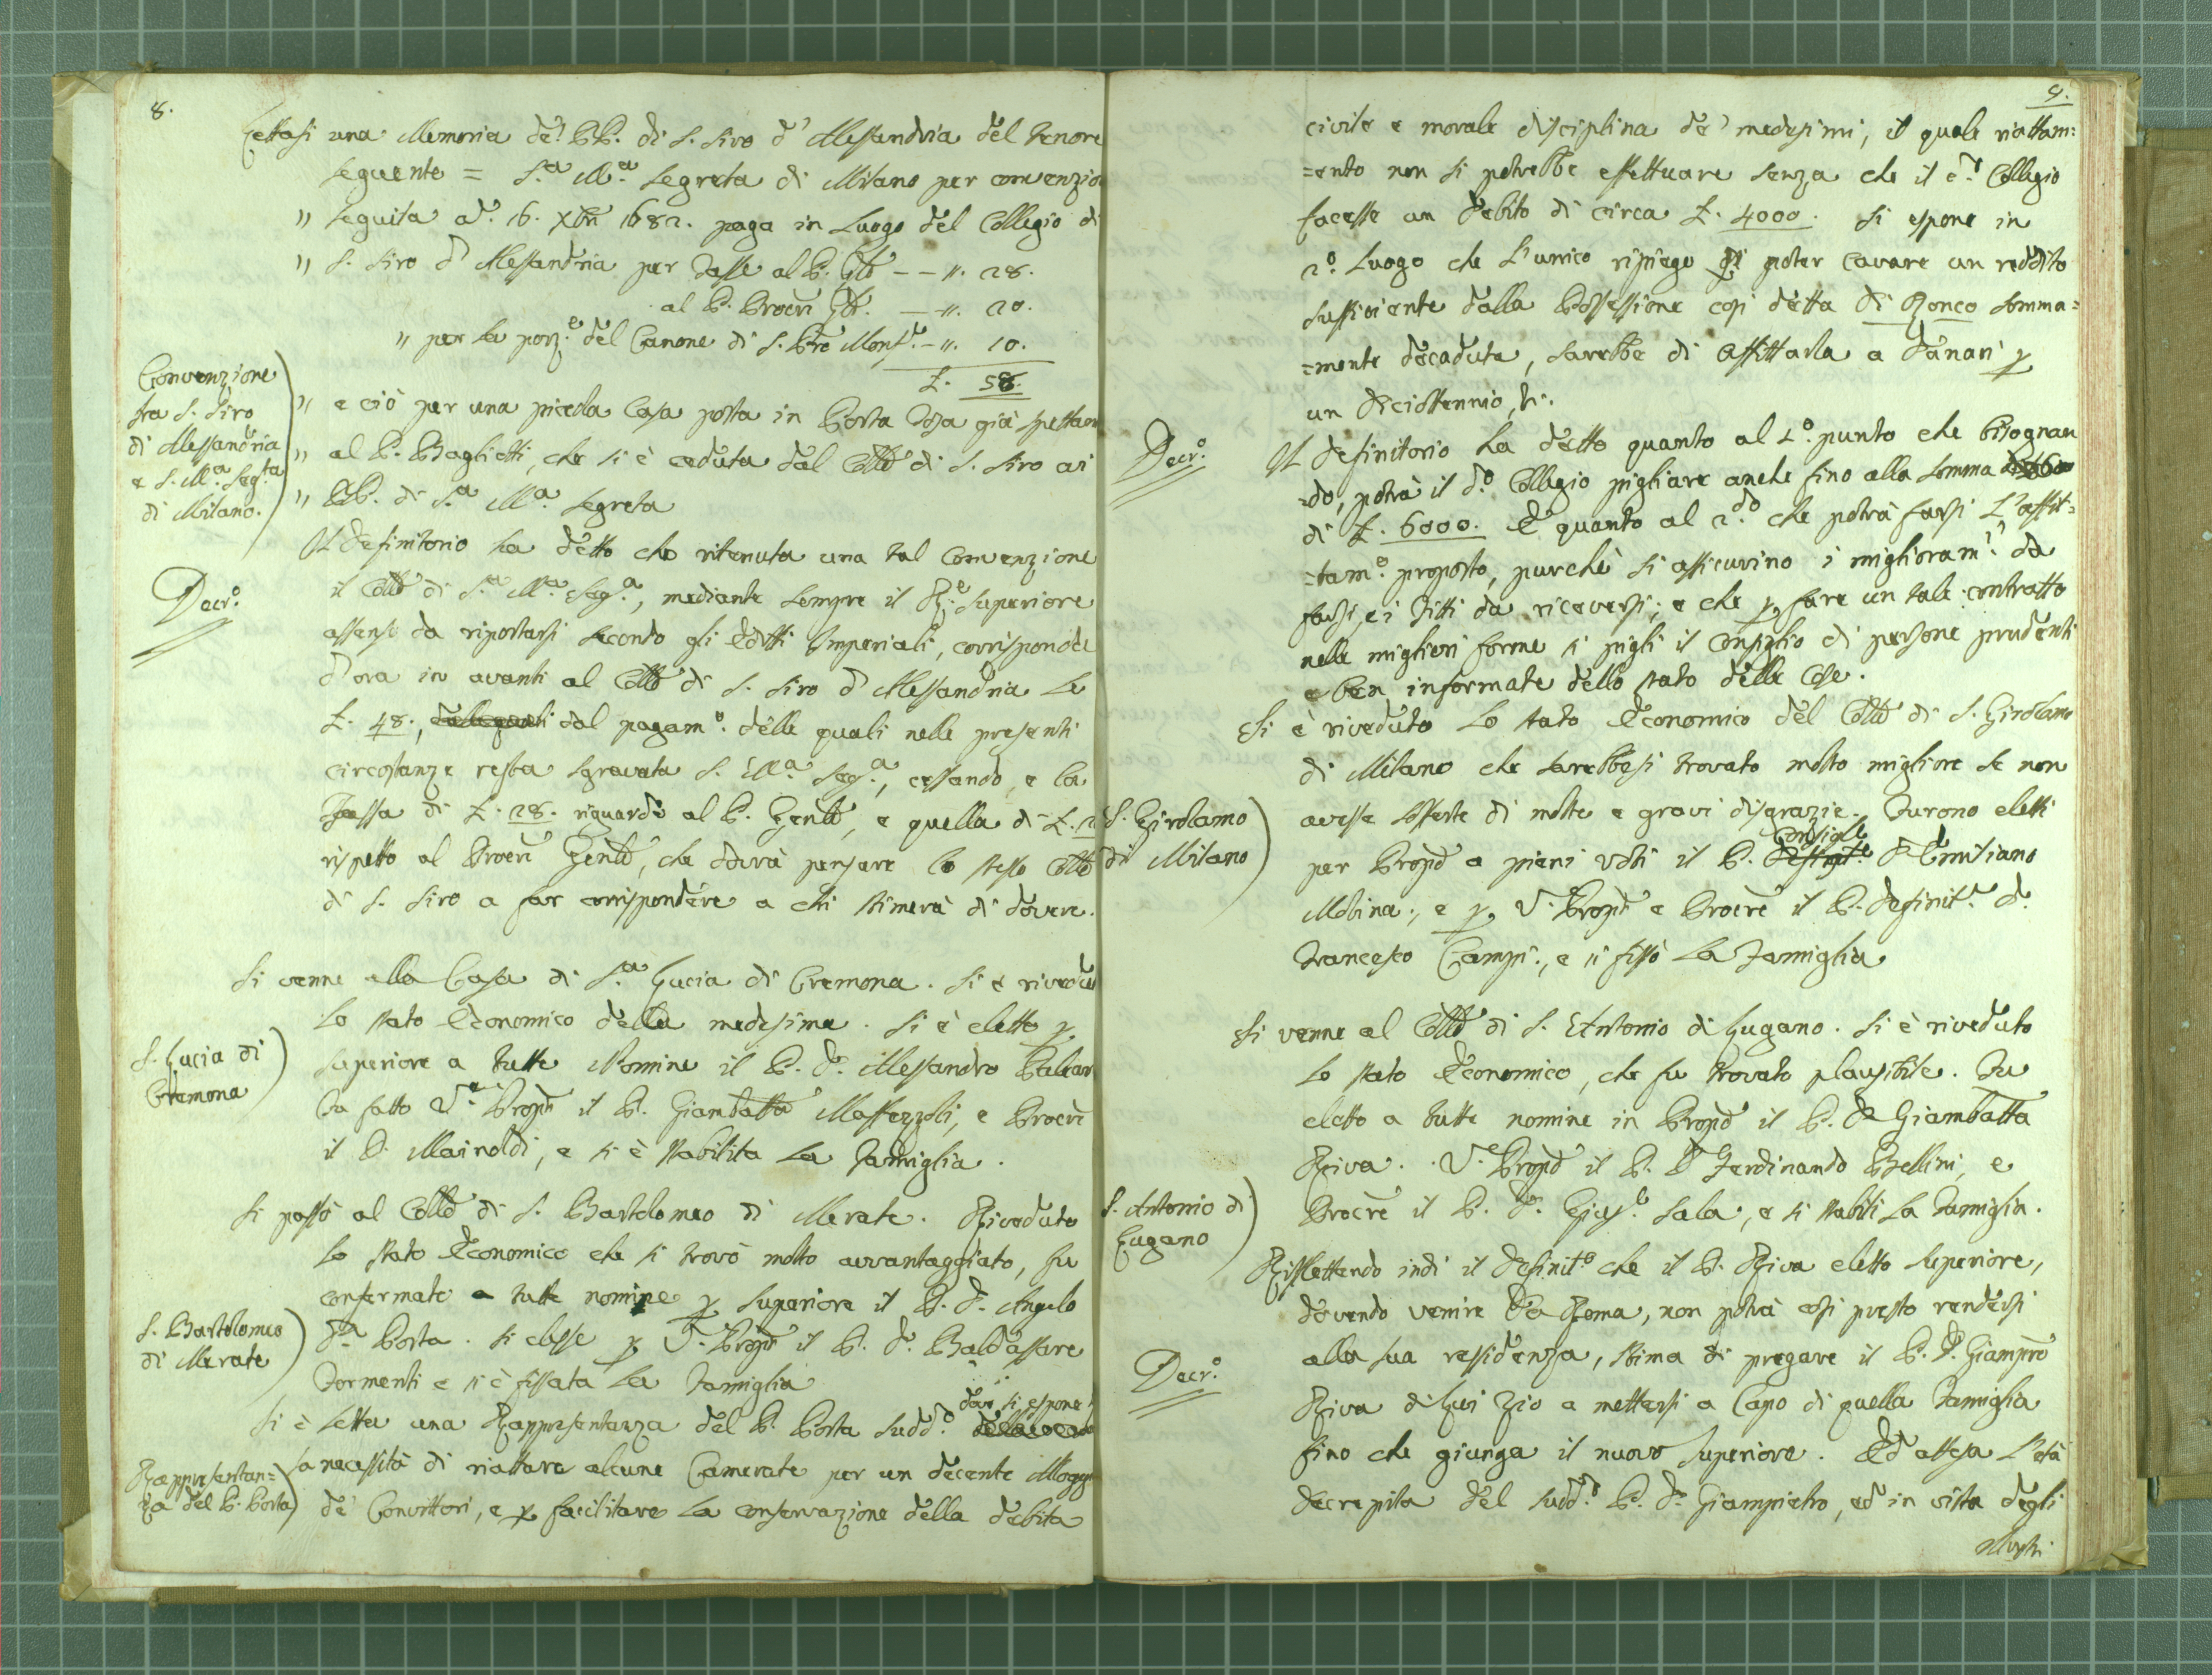 8.
Lettasi una Memoria de' PP. di S. Siro d' Alessandria del tenore
seguente = S.a M.a Segreta di Milano per convenzio
" seguita a d. 16. Xbre 1682. paga in Luogo del Collegio di
" S. Siro d' Alessandria per Tasse al P. Gñle — — ". 28.
al P. Procre Gñle. — ". 20.
" per la porz.e del Canone di S. Pro Monf.te — ". 10.
£. 58.
Convenzione
tra S. Siro
di Alessandria
e S. M.a Seg.ta
di Milano.
" e ciò per una picciola Casa posta in Porta Tosa già spettan
" al P. Baglietti, che si è ceduta dal Collo di S. Siro ai
" PP. di S.a M.a Segreta
Decr.o
Il Definitorio ha detto che ritenuta una tal Convenzione
il Collo di S.a M.a Seg.a, mediante sempre il R.e Superiore
assenso da riportarsi secondo gli Editti Imperiali, corrisponda
d'ora in avanti al Collo di S. Siro d' Alessandria le
£. 48., dalle quali dal pagam.o delle quali nelle presenti
circostanze resta sgravata S. M.a Seg.a, cessando, e la
Tassa di £. 28. riguardo al P. Genle, e quella di £. 2
rispetto al Procre Genle, che dovrà pensare lo stesso Collo
di S. Siro a far corrispondere a chi stimerà di dovere.
S. Lucia di
Cremona
Si venne alla Casa di S.a Lucia di Cremona. Si è rivedu
lo stato Economico della medesima. Si è eletto p
Superiore a tutte Nomine il P. D. Alessandro
Fu fatto V. Propto il P. Giambatta Maffezzoli, e Procre
il P. Mainoldi, e si è stabilita la Famiglia.
S. Bartolomeo
di Merate
Si passò al Collo di S. Bartolomeo di Merate. Riveduto
lo stato Economico che si trovò molto avvantaggiato, fu
confermato a tutte nomine p Superiore il P. D. Angelo
Dã Porta. Si elesse p V. Propto il P. D. Baldassare
Tormenti e si è fissata la Famiglia
Rappresentan=
za del P. Porta
Si è letta una Rappresentanza del P. Porta sudd.o dove si espone
la necessità di riattare alcune Camerate per un decente Allogg
de' Convittori, e p facilitare la conservazione della debita
9.
civile e morale disciplina de' medesimi, il quale riattam=
=ento non si potrebbe effettuare senza che il d.o Collegio
facesse un debito di circa £. 4000. Si espone in
2.o Luogo che l'unico ripiego di poter cavare un reddito
sufficiente dalla Possessione così detta di Ronco somma=
=mente decaduta, sarebbe di affittarla a danari p
un diciottennio &.
Decr.o
Il Definitorio ha detto quanto al 1.o punto che bisognan
=do, potrà il d.o Collegio pigliare anche fino alla somma
di £. 6000. E quanto al 2.do che potrà farsi l'affit=
=tam.o proposto, purchè si assicurino i miglioram.ti da
farsi, e i Fitti da riceversi; e che p fare un tale contratto
nelle migliori forme si pigli il Consiglio di persone prudenti
e ben informate dello stato delle Cose.
S. Girolamo
di Milano
Si è riveduto lo stato Economico del Collo di S. Girolamo
di Milano che sarebbesi trovato molto migliore se non
avesse sofferte di molte e gravi disgrazie. Furono eletti
per Propto a pieni voti il P. Consigle D. Emiliano
Molina, e p V. Propto e Procre il P. Definit.e D.
Francesco Campi, e si fissò la Famiglia
S. Antonio di
Lugano
Si venne al Collo di S. Antonio di Lugano. Si è riveduto
lo stato Economico, che fu trovato plausibile. Fu
eletto a tutte nomine in Propto il P. D. Giambatta
Riva. V. Propto il P. D. Ferdinando Bellini, e
Procre il P. D. Gius.e Sala, e si stabilì la Famiglia.
Decr.o
Riflettendo indi il Definit.o che il P. Riva eletto Superiore,
dovendo venire da Roma, non potrà così presto rendersi
alla sua residenza, stima di pregare il P. D. Giampro
Riva di lui Zio a mettersi a Capo di quella Famiglia
fino che giunga il nuovo Superiore. Ed attesa l'età
decrepita del sudd.o P. D. Giampietro, ed in vista degli